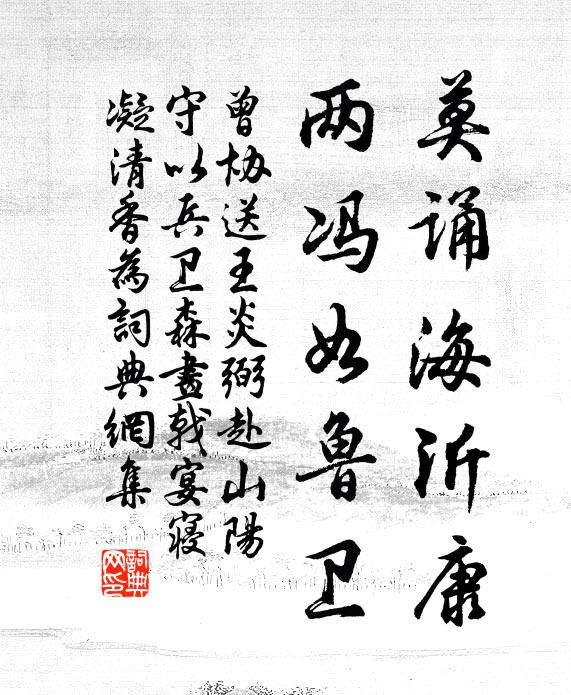 莫诵海沂康
两冯如鲁卫
曾协送王炎弼赴山陽
守以兵卫森畫戟宴寝
凝清香為詞典網集
詞典
网印